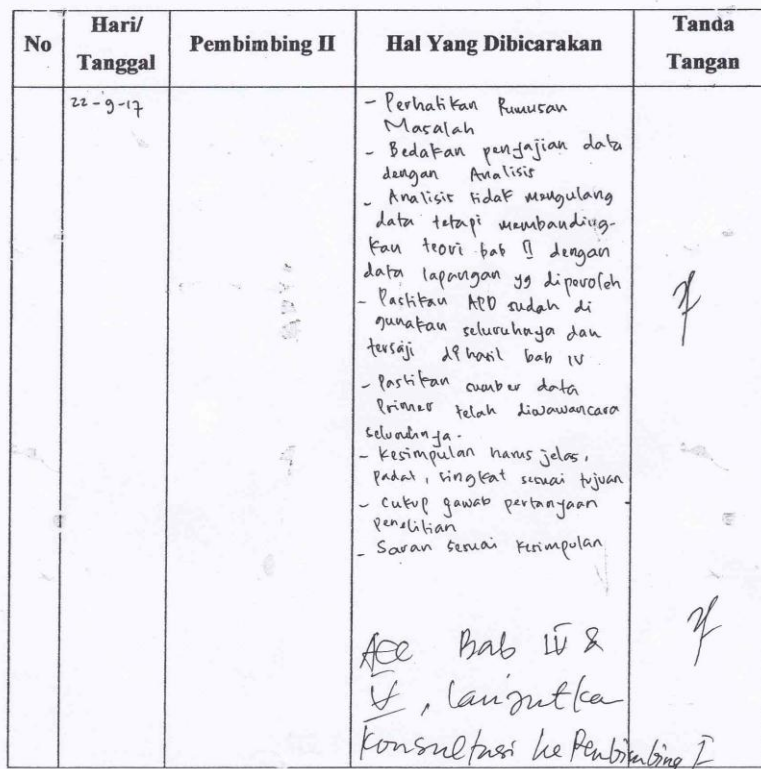 No
Hari/
Tanggal
Pembimbing II
Hal Yang Dibicarakan
Tanda
Tangan
22-9-17
- Perhatikan Rumusan
Masalah
- Bedakan penyajian data
dengan Analisis
- Analisis tidak mengulang
data tetapi membanding-
kan teori bab II dengan
data lapangan yg diperoleh
- Pastikan APD sudah di
gunakan seluruhnya dan
tersaji di hasil bab IV
- Pastikan sumber data
Primer telah diwawancara
seluruhnya.
- Kesimpulan harus jelas,
padat, singkat sesuai tujuan
- Cukup jawab pertanyaan
penelitian
- Saran sesuai kesimpulan
Acc Bab IV &
V, lanjutka
konsultasi ke Pembimbing I